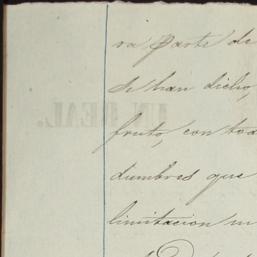 ra parte de
se han dicho,
UN REAL.
fruto, con tod
dumbres que
limitacion ni